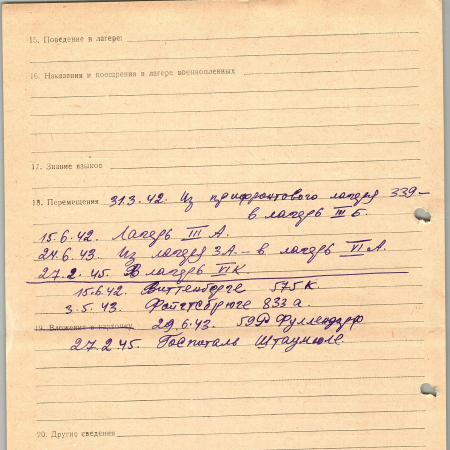 15. Поведение в лагере:
16. Наказания и поощрения в лагере военнопленных
17. Знание языков
18. Перемещения 31.3.42. Из прифронтового лагеря 339-
в лагерь III Б.
15.6.42. Лагерь III А.
24.6.43. Из лагеря 3А. - в лагерь VI А.
27.2.45. В лагерь VI К.
15.6.42. Виттенберге 575 к.
3.5.43. 833 а.
19. Вложения в карточку 29.6.43. 59
27.2.45. Госпиталь Штаумюле.
20. Другие сведения